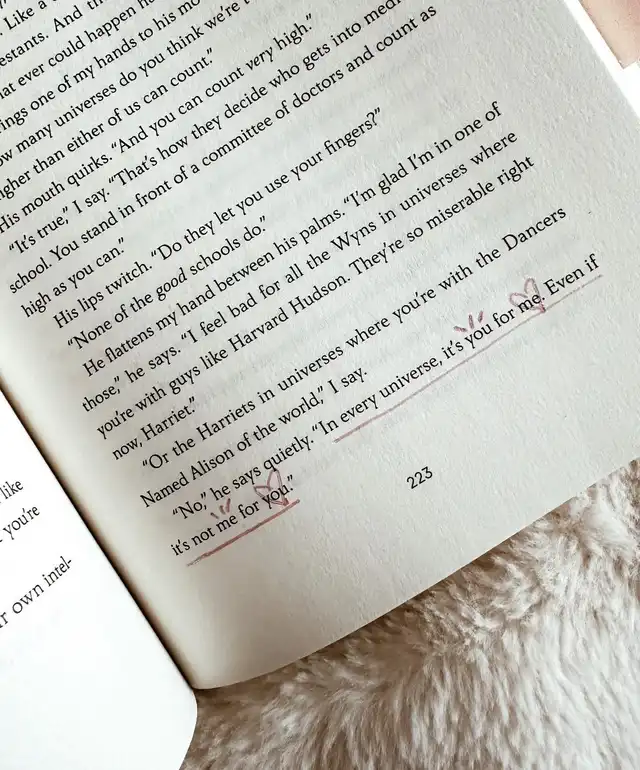 Like a
And th
at ever could happen
ings one of my hands to his mo
ow many universes do you think we're
gher than either of us can count."
His mouth quirks. "And you can count very high."
"It's true," I say. "That's how they decide who gets into
school. You stand in front of a committee of doctors and count as
high as you can."
His lips twitch. "Do they let you use your fingers?"
"None of the good schools do."
He flattens my hand between his palms. "I'm glad I'm in one of
those," he says. "I feel bad for all the Wyns in universes where
you're with guys like Harvard Hudson. They're so miserable right
now, Harriet."
"Or the Harriets in universes where you're with the Dancers
Named Alison of the world," I say.
"No," he says quietly. "In every universe, it's you for me. Even if
it's not me for you."
223
like
you're
own intel-